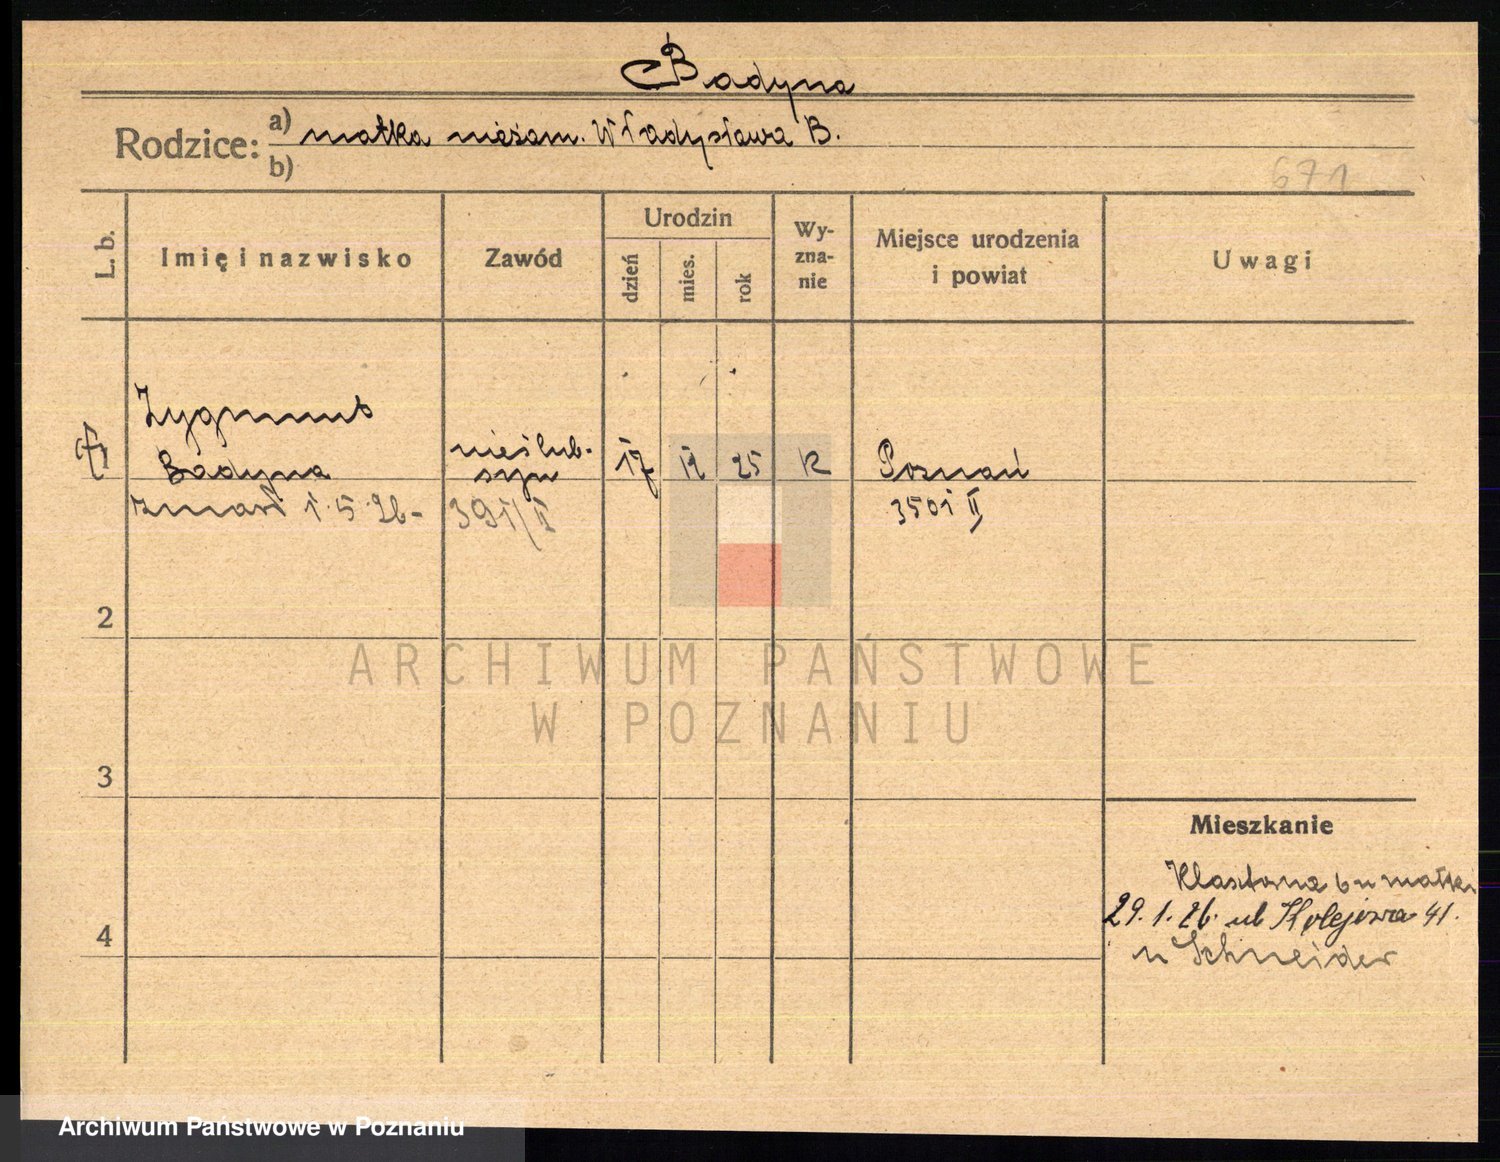 Badyna
Rodzice: a) matka niezam. Władysława B.
b)
671
L. b.
Imię i nazwisko
Zawód
Urodzin
dzień
mies.
rok
Wy-
zna-
nie
Miejsce urodzenia
i powiat
Uwagi
Zygmunt
Badyna
nieślub.
syn
17 12 25 K Poznań
zmarł 1.5.26- 391/II
3501 II
2
3
4
Mieszkanie
Klasztorna 6 u matki
29.1.26. ul Kolejowa 41.
u Schneider
ARCHIWUM PAŃSTWOWE
W POZNANIU
Archiwum Państwowe w Poznaniu